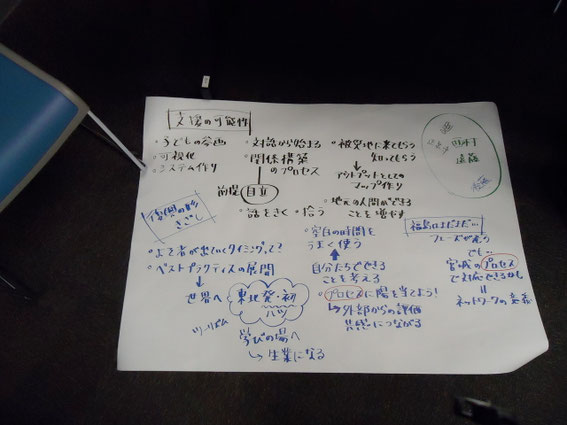 支援の可能性
・子どもの参画
・可視化
・システム作り
・対話から始まる
・関係構築
のプロセス
前提 自立
・話をきく ・拾う
・被災地に来てもらう
知ってもらう
アウトプットとしての
マップ作り
・地元の人間ができる
ことを増やす
・空白の時間を
うまく使う
自分たちでできる
ことを考える
・プロセスに陽を当てよう!
外部からの評価
共感につながる
復興の
きざし
・よそ者が出ていくタイミングって?
・ベストプラクティスの展開
世界へ
東北発・初
ハツ
ツーリズム
学びの場へ
生業になる
福島はまだまだ…
フェーズが違う
でも…
宮城のプロセス
で対応できるかも
=
ネットワークの意義
遠藤